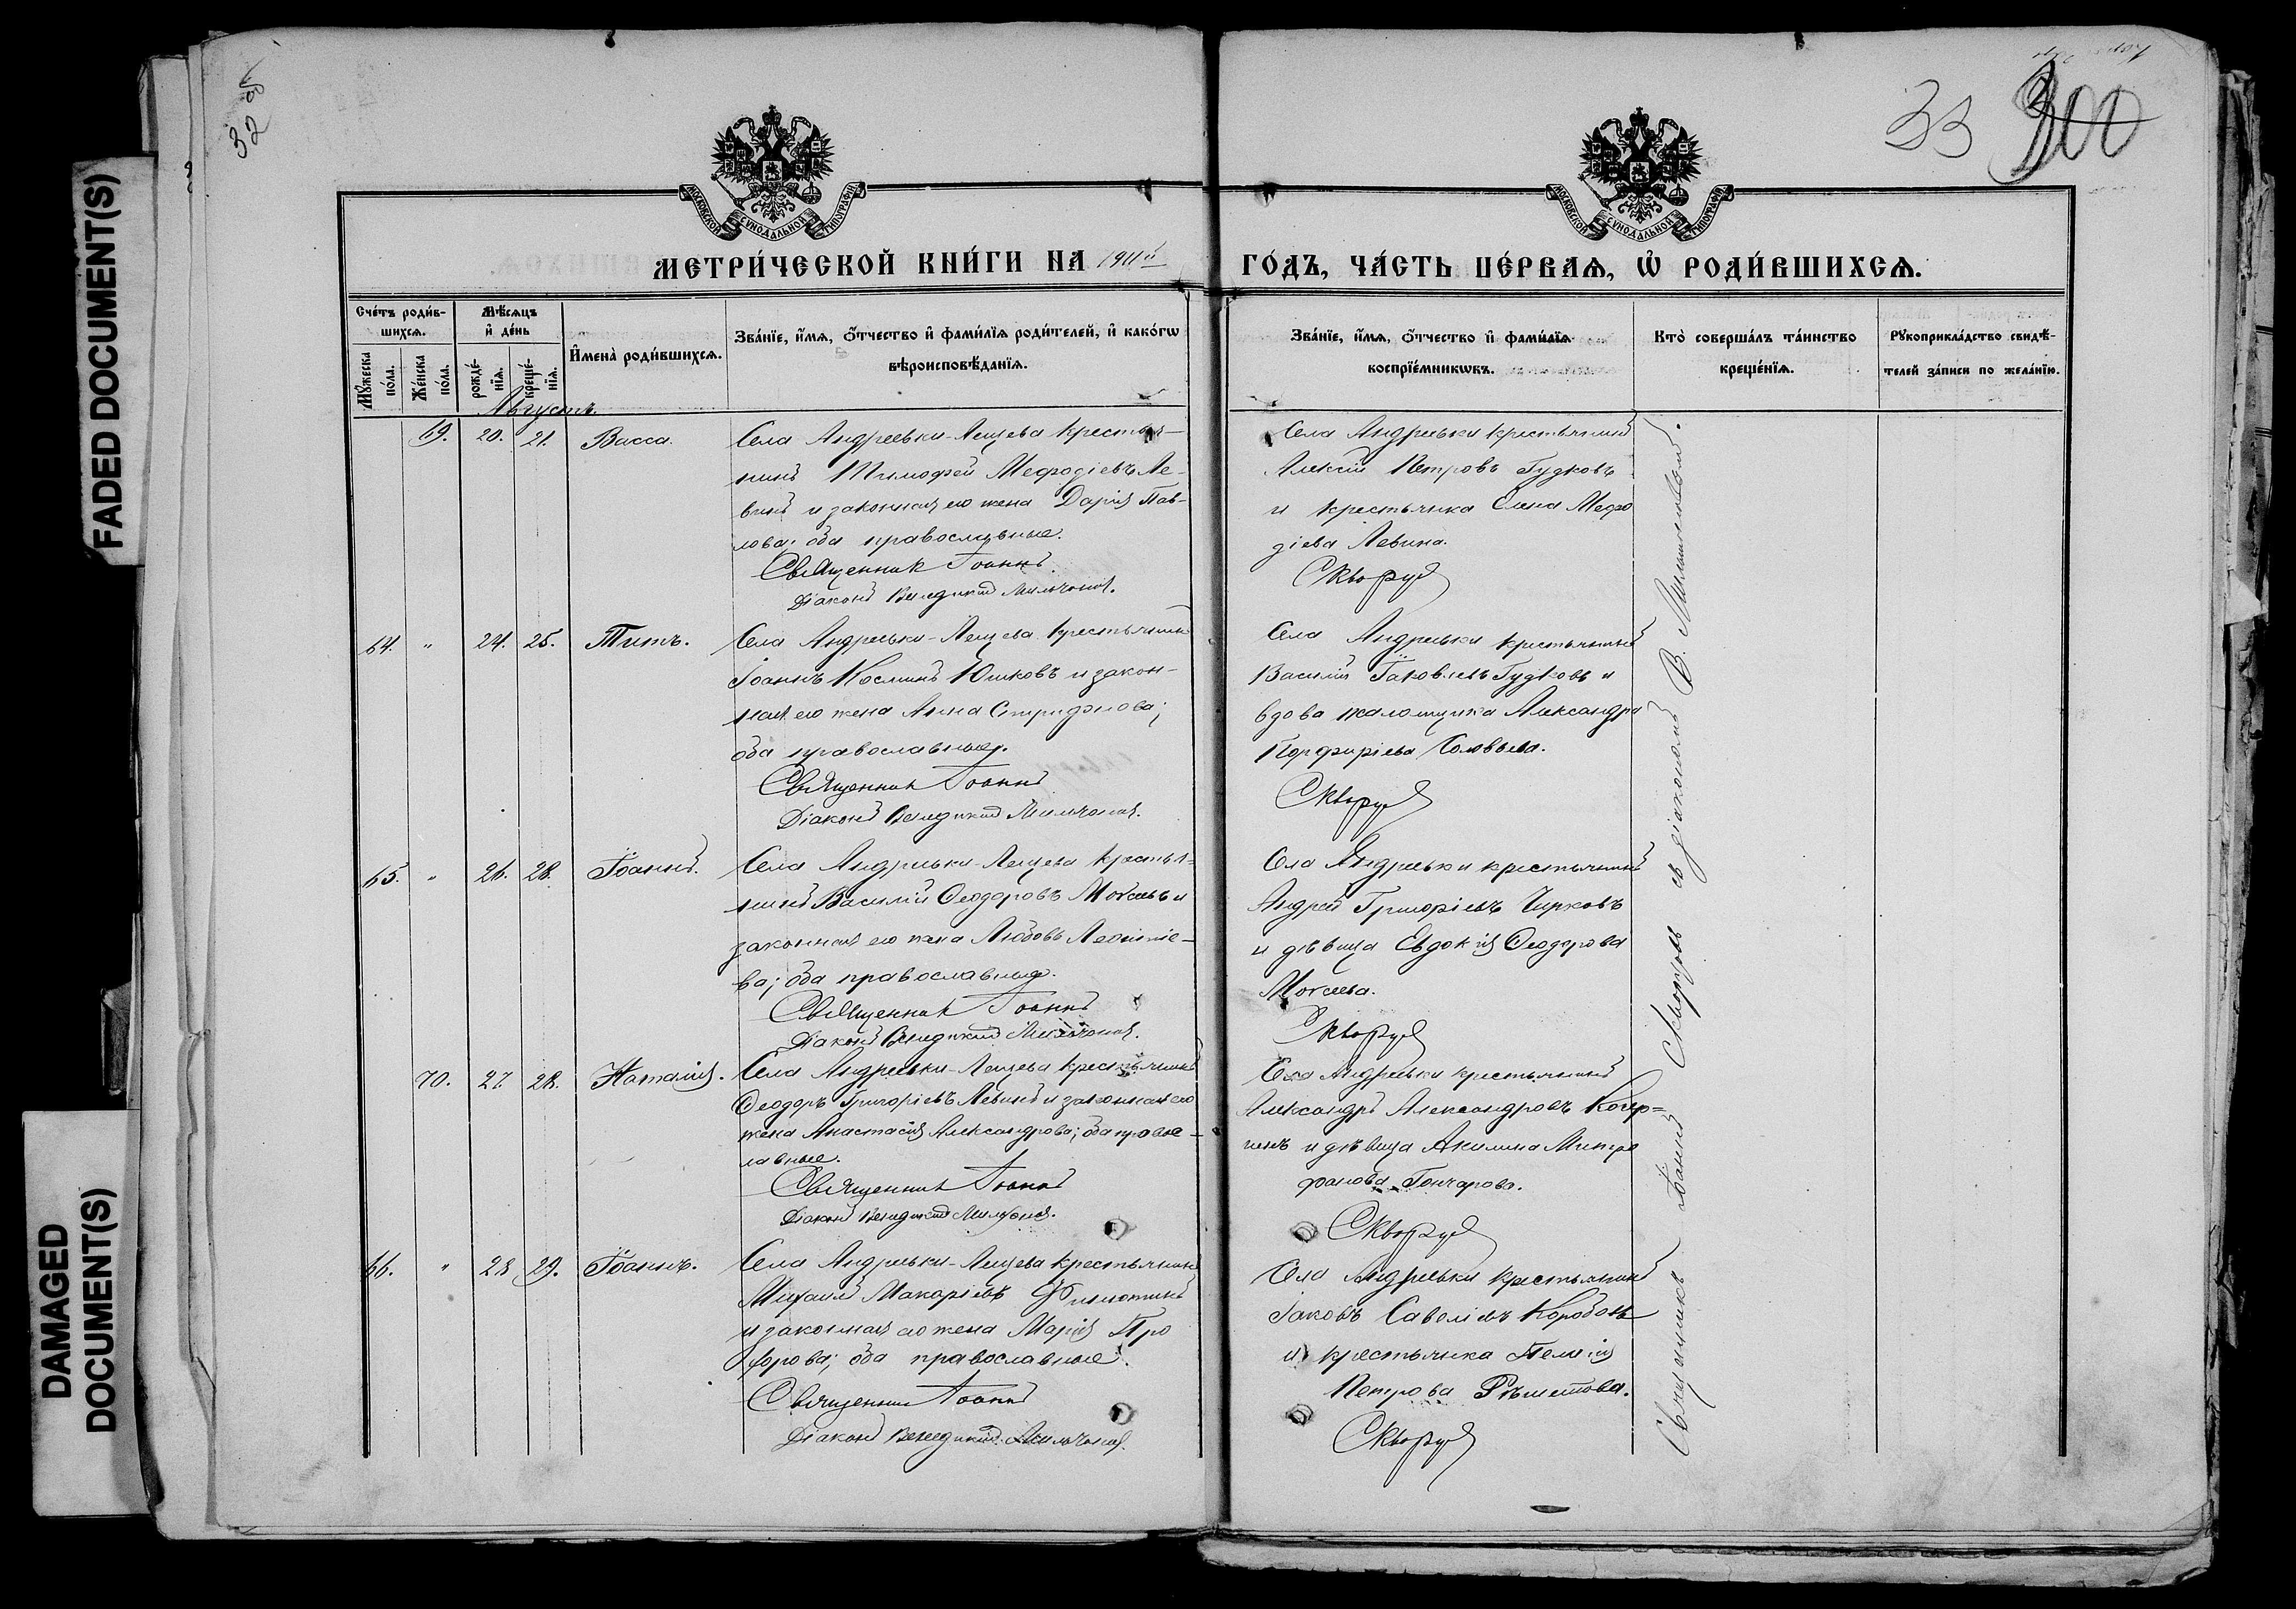 FADED DOCUMENT(S)
DAMAGED
DOCUMENT(S)
32 об
33 300
МОСКОВСКОЙ СѴНОДАЛЬНОЙ ТИПОГРАФІИ
МОСКОВСКОЙ СѴНОДАЛЬНОЙ ТИПОГРАФІИ
МЕТРИ́ЧЕСКОЙ КНИ́ГИ НА 1911й
ГО́ДЪ, ЧА́СТЬ ПЕ́РВАѦ, Ѡ҆ РОДИ́ВШИХСѦ.
Сче́тъ роди́в-
шихсѧ.
Мꙋ́жеска
по́ла.
Же́нска
по́ла.
Мѣ́сѧцъ
и҆ де́нь
рожде́-
нїѧ.
креще́-
нїѧ.
И҆мена̀ роди́вшихсѧ.
Зва́нїе, и҆́мѧ, ѻ҆́тчество и҆ фами́лїѧ роди́телей, и҆ како́гѡ
вѣроисповѣ́данїѧ.
Зва́нїе, и҆́мѧ, ѻ҆́тчество и҆ фами́лїѧ
воспрїе́мникѡвъ.
Кто̀ соверша́лъ та́инство
креще́нїѧ.
Рꙋкоприкла́дство свидѣ́-
телей за́писи по жела́нїю.
Августъ.
69. 20. 21. Васса.
Села Андреевки-Лещева крестья-
нинъ Тимофей Мефодіевъ Ле-
винъ и законная его жена Дарія Пав-
лова; оба православные.
Священник Іоаннъ
Діаконъ Венедиктъ
Села Андреевки крестьянинъ
Алексій Петровъ Гудковъ
и крестьянка Елена Мефо
діева Левина.
Скворцовъ
64. " 24. 25. Титъ.
Села Андреевки-Лещева крестьянинъ
Іоаннъ Косминъ Юшковъ и закон-
ная его жена Анна Спиридонова;
оба православные.
Священник Іоаннъ
Діаконъ Венедиктъ
Села Андреевки крестьянинъ
Василій Іаковлевъ Гудковъ и
вдова псаломщика Александра
Порфиріева Соловьева.
Скворцовъ
65. " 26. 28. Іоаннъ.
Села Андреевки-Лещева крестья-
нинъ Василій Ѳеодоровъ Моѵсеевъ и
законная его жена Любовь Леонтіе-
ва; оба православные.
Священник Іоаннъ
Діаконъ Венедиктъ
Села Андреевки крестьянинъ
Андрей Григоріевъ Чирковъ
и дѣвица Евдокія Ѳеодорова
Моѵсеева.
Скворцовъ
70. 27. 28. Наталія.
Села Андреевки-Лещева крестьянинъ
Ѳеодоръ Григоріевъ Левинъ и законная его
жена Анастасія Александрова; оба правос-
лавные.
Священник Іоаннъ
Діаконъ Венедиктъ
Села Андреевки крестьянинъ
Александръ Александровъ
и дѣвица Акилина Митро
фанова Гончарова.
Скворцовъ
66. " 28 29. Іоаннъ.
Села Андреевки-Лещева крестьянинъ
Михаилъ Макаріевъ
и законная его жена Марія Про
хорова; оба православные.
Священник Іоаннъ
Діаконъ Венедиктъ
Села Андреевки крестьянинъ
Іаковъ Савеліевъ Коробовъ
и крестьянка Пелагія
Петрова Рѣшетова.
Скворцовъ
Священникъ Іоаннъ Скворцовъ съ діакономъ В.